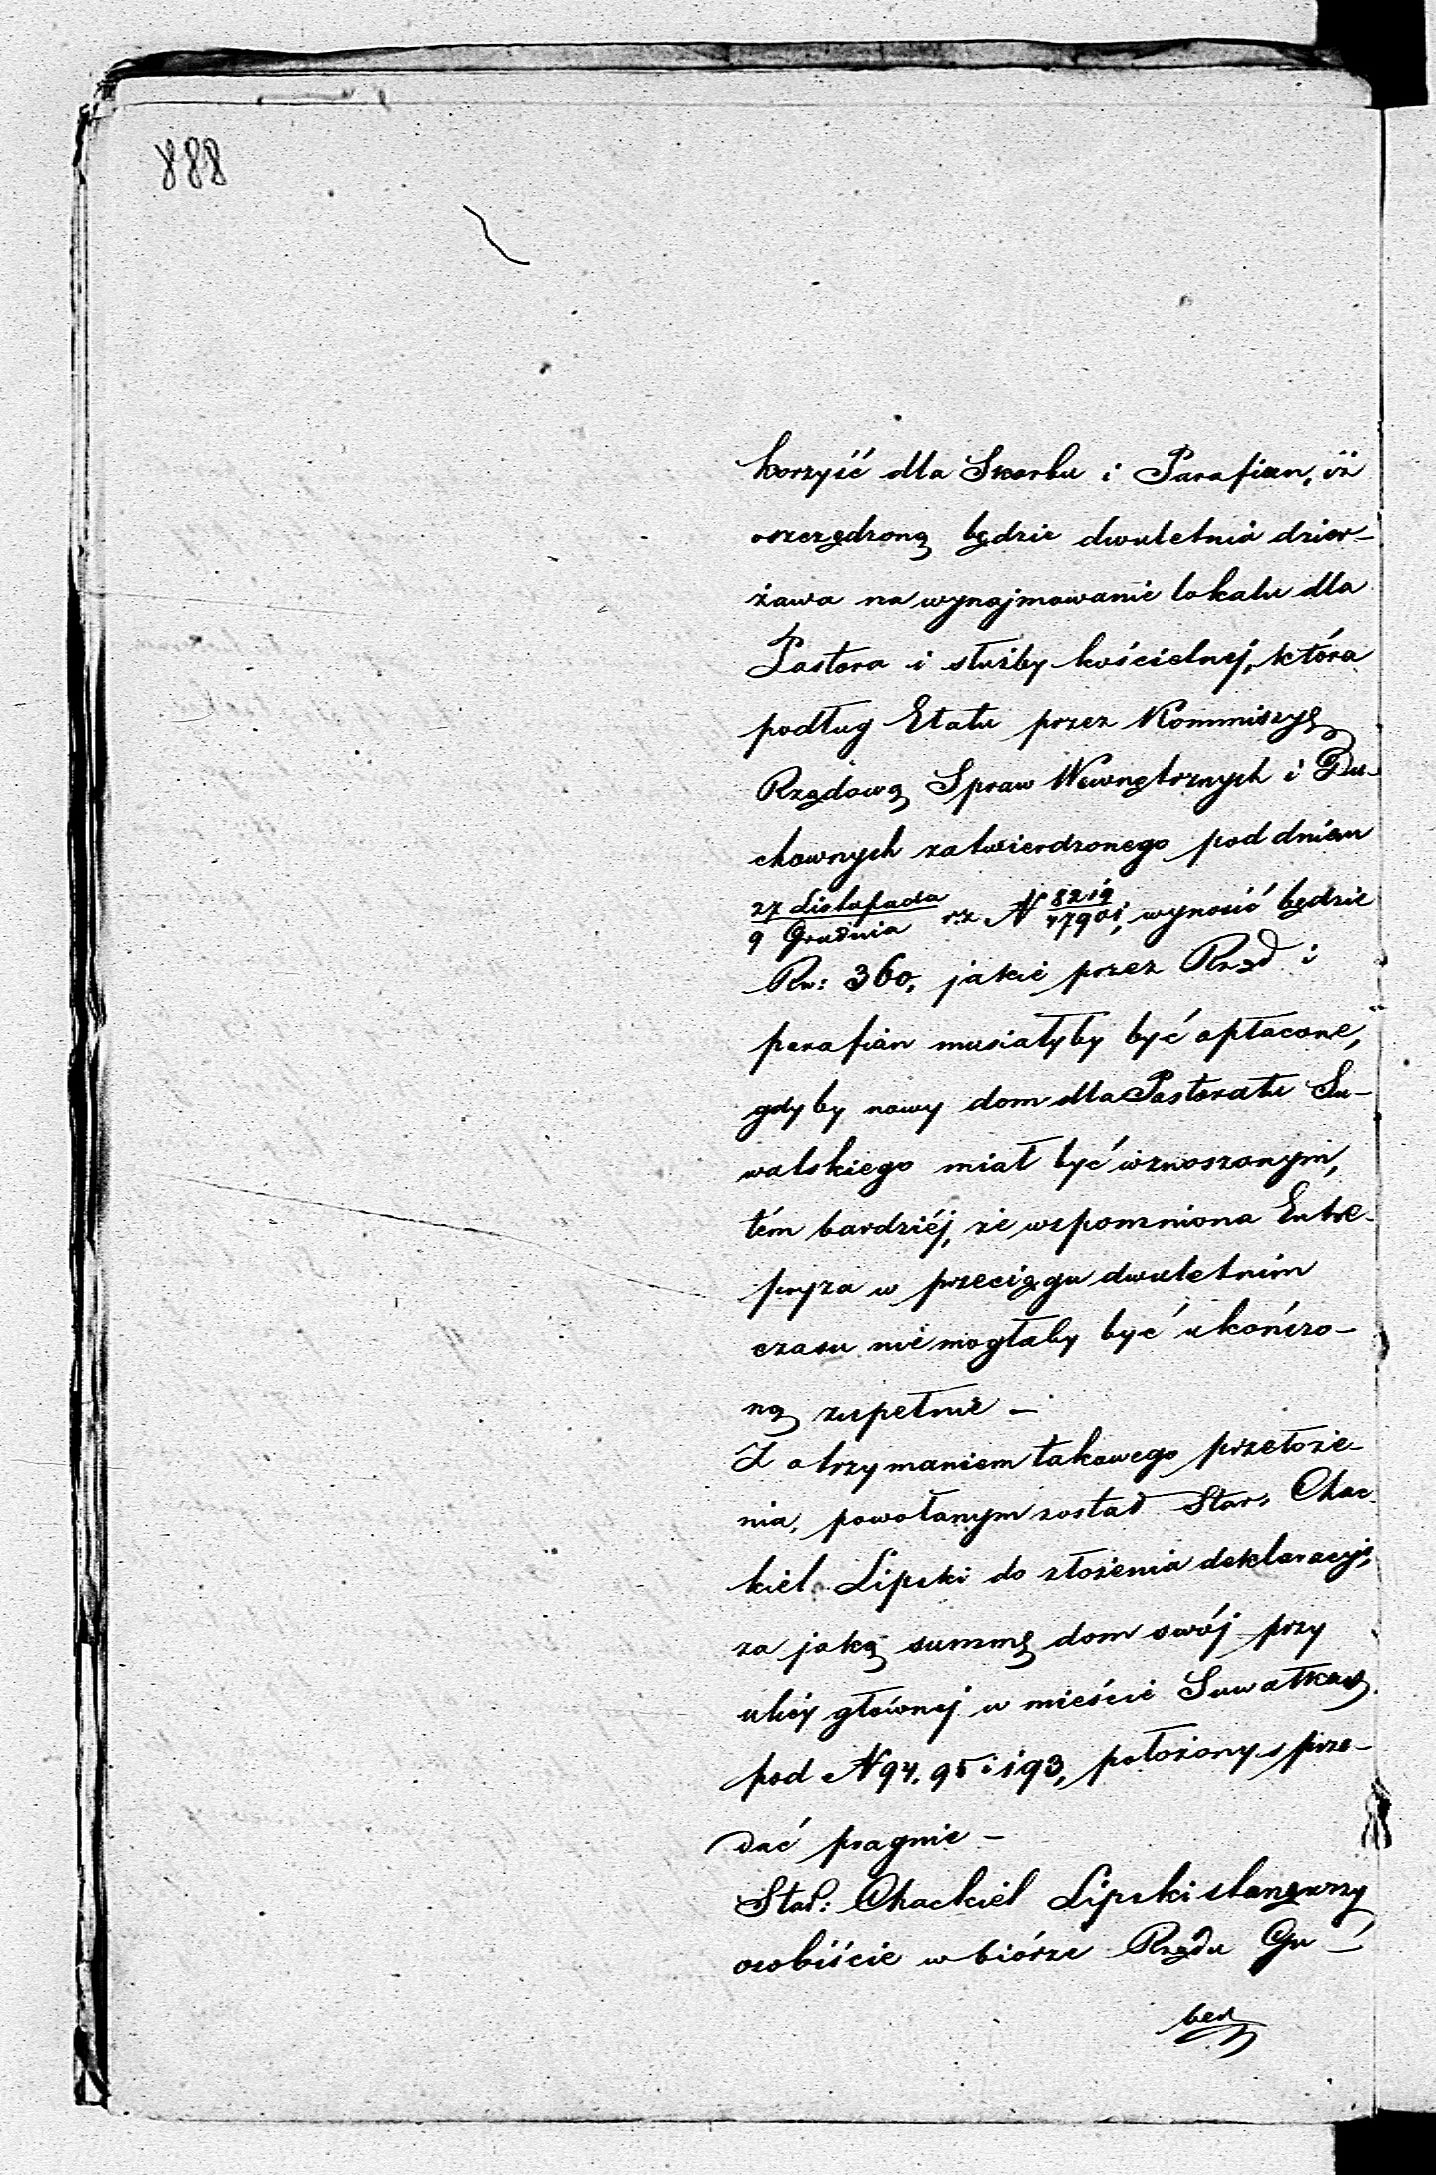 888
korzyść dla Skarbu i Parafian, iż
oszczędzoną będzie dwuletnia dzier-
żawa na wynajmowanie lokalu dla
Pastora i służby kościelnej, która
podług Etatu przez Kommissyę
Rządową Spraw Wewnętrznych i Du-
chownych zatwierdzonego pod dniem
27 Listopada / 9 Grudnia r.z. N 8219 / 47901, wynosić będzie
Rs: 360, jakie przez Rząd i
parafian musiałyby być opłacone,
gdyby nowy dom dla Pastoratu Su-
walskiego miał być wznoszonym,
tém bardziéj, że wspomniona Entre-
pryza w przeciągu dwuletnim
czasu nie mogłaby być ukończo-
ną zupełnie –
Z otrzymaniem takowego przełoże-
nia, powołanym został Star: Chac
kiel Lipski do złożenia deklaracyi,
za jaką summę dom swój przy
ulicy głównej w mieście Suwałkach
pod N 94, 95 i 193, położony, sprze-
dać pragnie –
Star: Chackiel Lipski stanąwszy
osobiście w biórze Rządu Gu –
ber